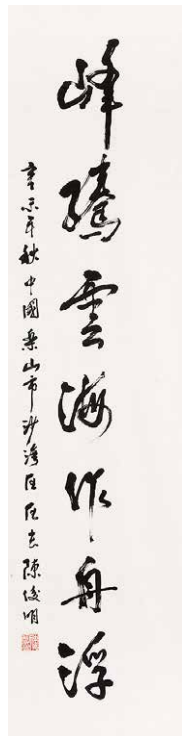 峰騰雲海作舟浮
辛未年秋中國樂山市沙灣区区长陳俊明